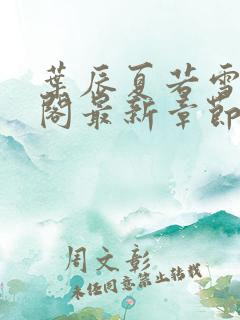 葉辰夏若雪
閣最新章節
周文彰
未经同意禁止转载